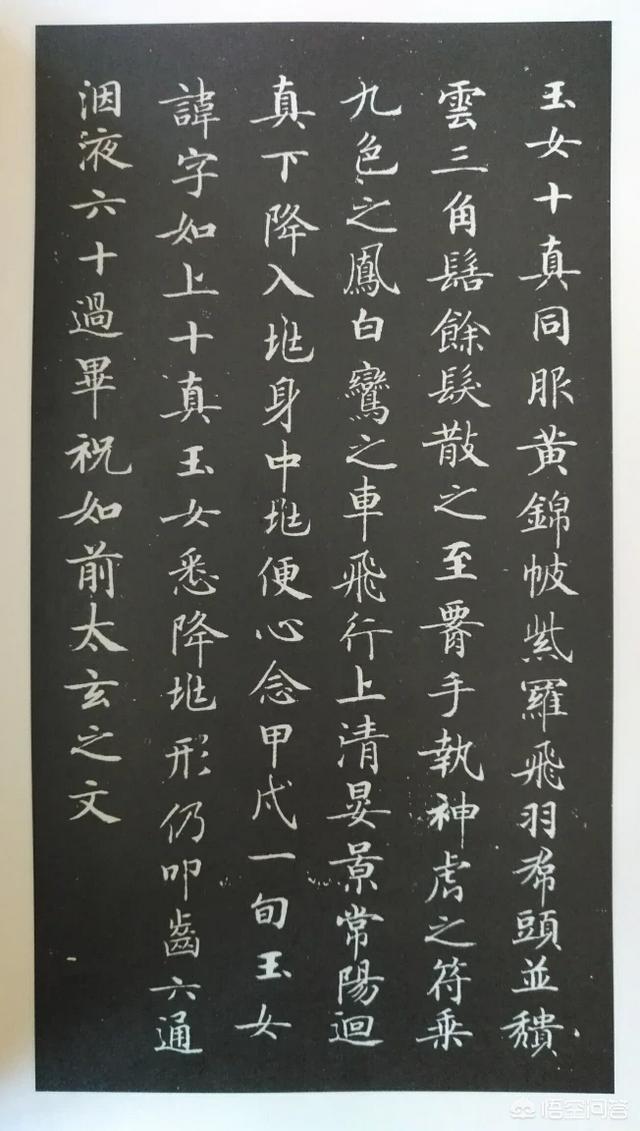 玉女十真同服黃錦帔紫羅飛羽帬頭並穨
雲三角髻餘髮散之至腰手執神虎之符乘
九色之鳳白鸞之車飛行上清晏景常陽迴
真下降入垗身中垗便心念甲戌一旬玉女
諱字如上十真玉女悉降垗形仍叩齒六通
洇液六十過畢祝如前太玄之文
悟空问答